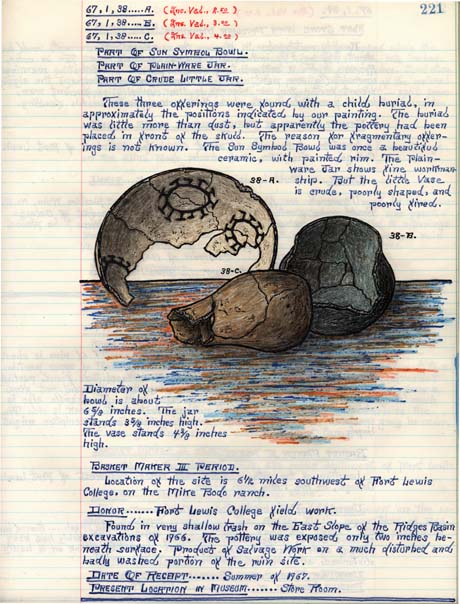 221
67, 1, 38.....A. (Ins. Val., 2.00)
67, 1, 38.....B. (Ins. Val., 3.00)
67, 1, 38..... C. (Ins. Val., 4.00)
PART OF SUN SYMBOL BOWL.
PART OF PLAIN-WARE JAR.
PART OF CRUDE LITTLE JAR.
These three offerings were found with a child burial, in
approximately the positions indicated by our painting. The burial
was little more than dust, but apparently the pottery had been
placed in front of the skull. The reason for fragmentary offer-
ings is not known. The Sun Symbol Bowl was once a beautiful
ceramic, with painted rim. The Plain-
ware Jar shows fine workman-
ship. But the little Vase
is crude, poorly shaped, and
poorly fired.
38-A.
38-B.
38-C.
Diameter of
bowl is about
6 5/8 inches. The jar
stands 3 5/8 inches high.
The vase stands 4 3/8 inches
high.
BASKET MAKER III PERIOD.
Location of the site is 6 1/2 miles southwest of Fort Lewis
College, on the Mike Bodo ranch.
DONOR....... Fort Lewis College field work.
Found in very shallow trash on the East Slope of the Ridges Basin
excavations of 1966. The pottery was exposed only two inches be-
neath surface. Product of Salvage Work on a much disturbed and
badly washed portion of the ruin site.
DATE OF RECEIPT........ Summer of 1967.
PRESENT LOCATION IN MUSEUM....... Store Room.